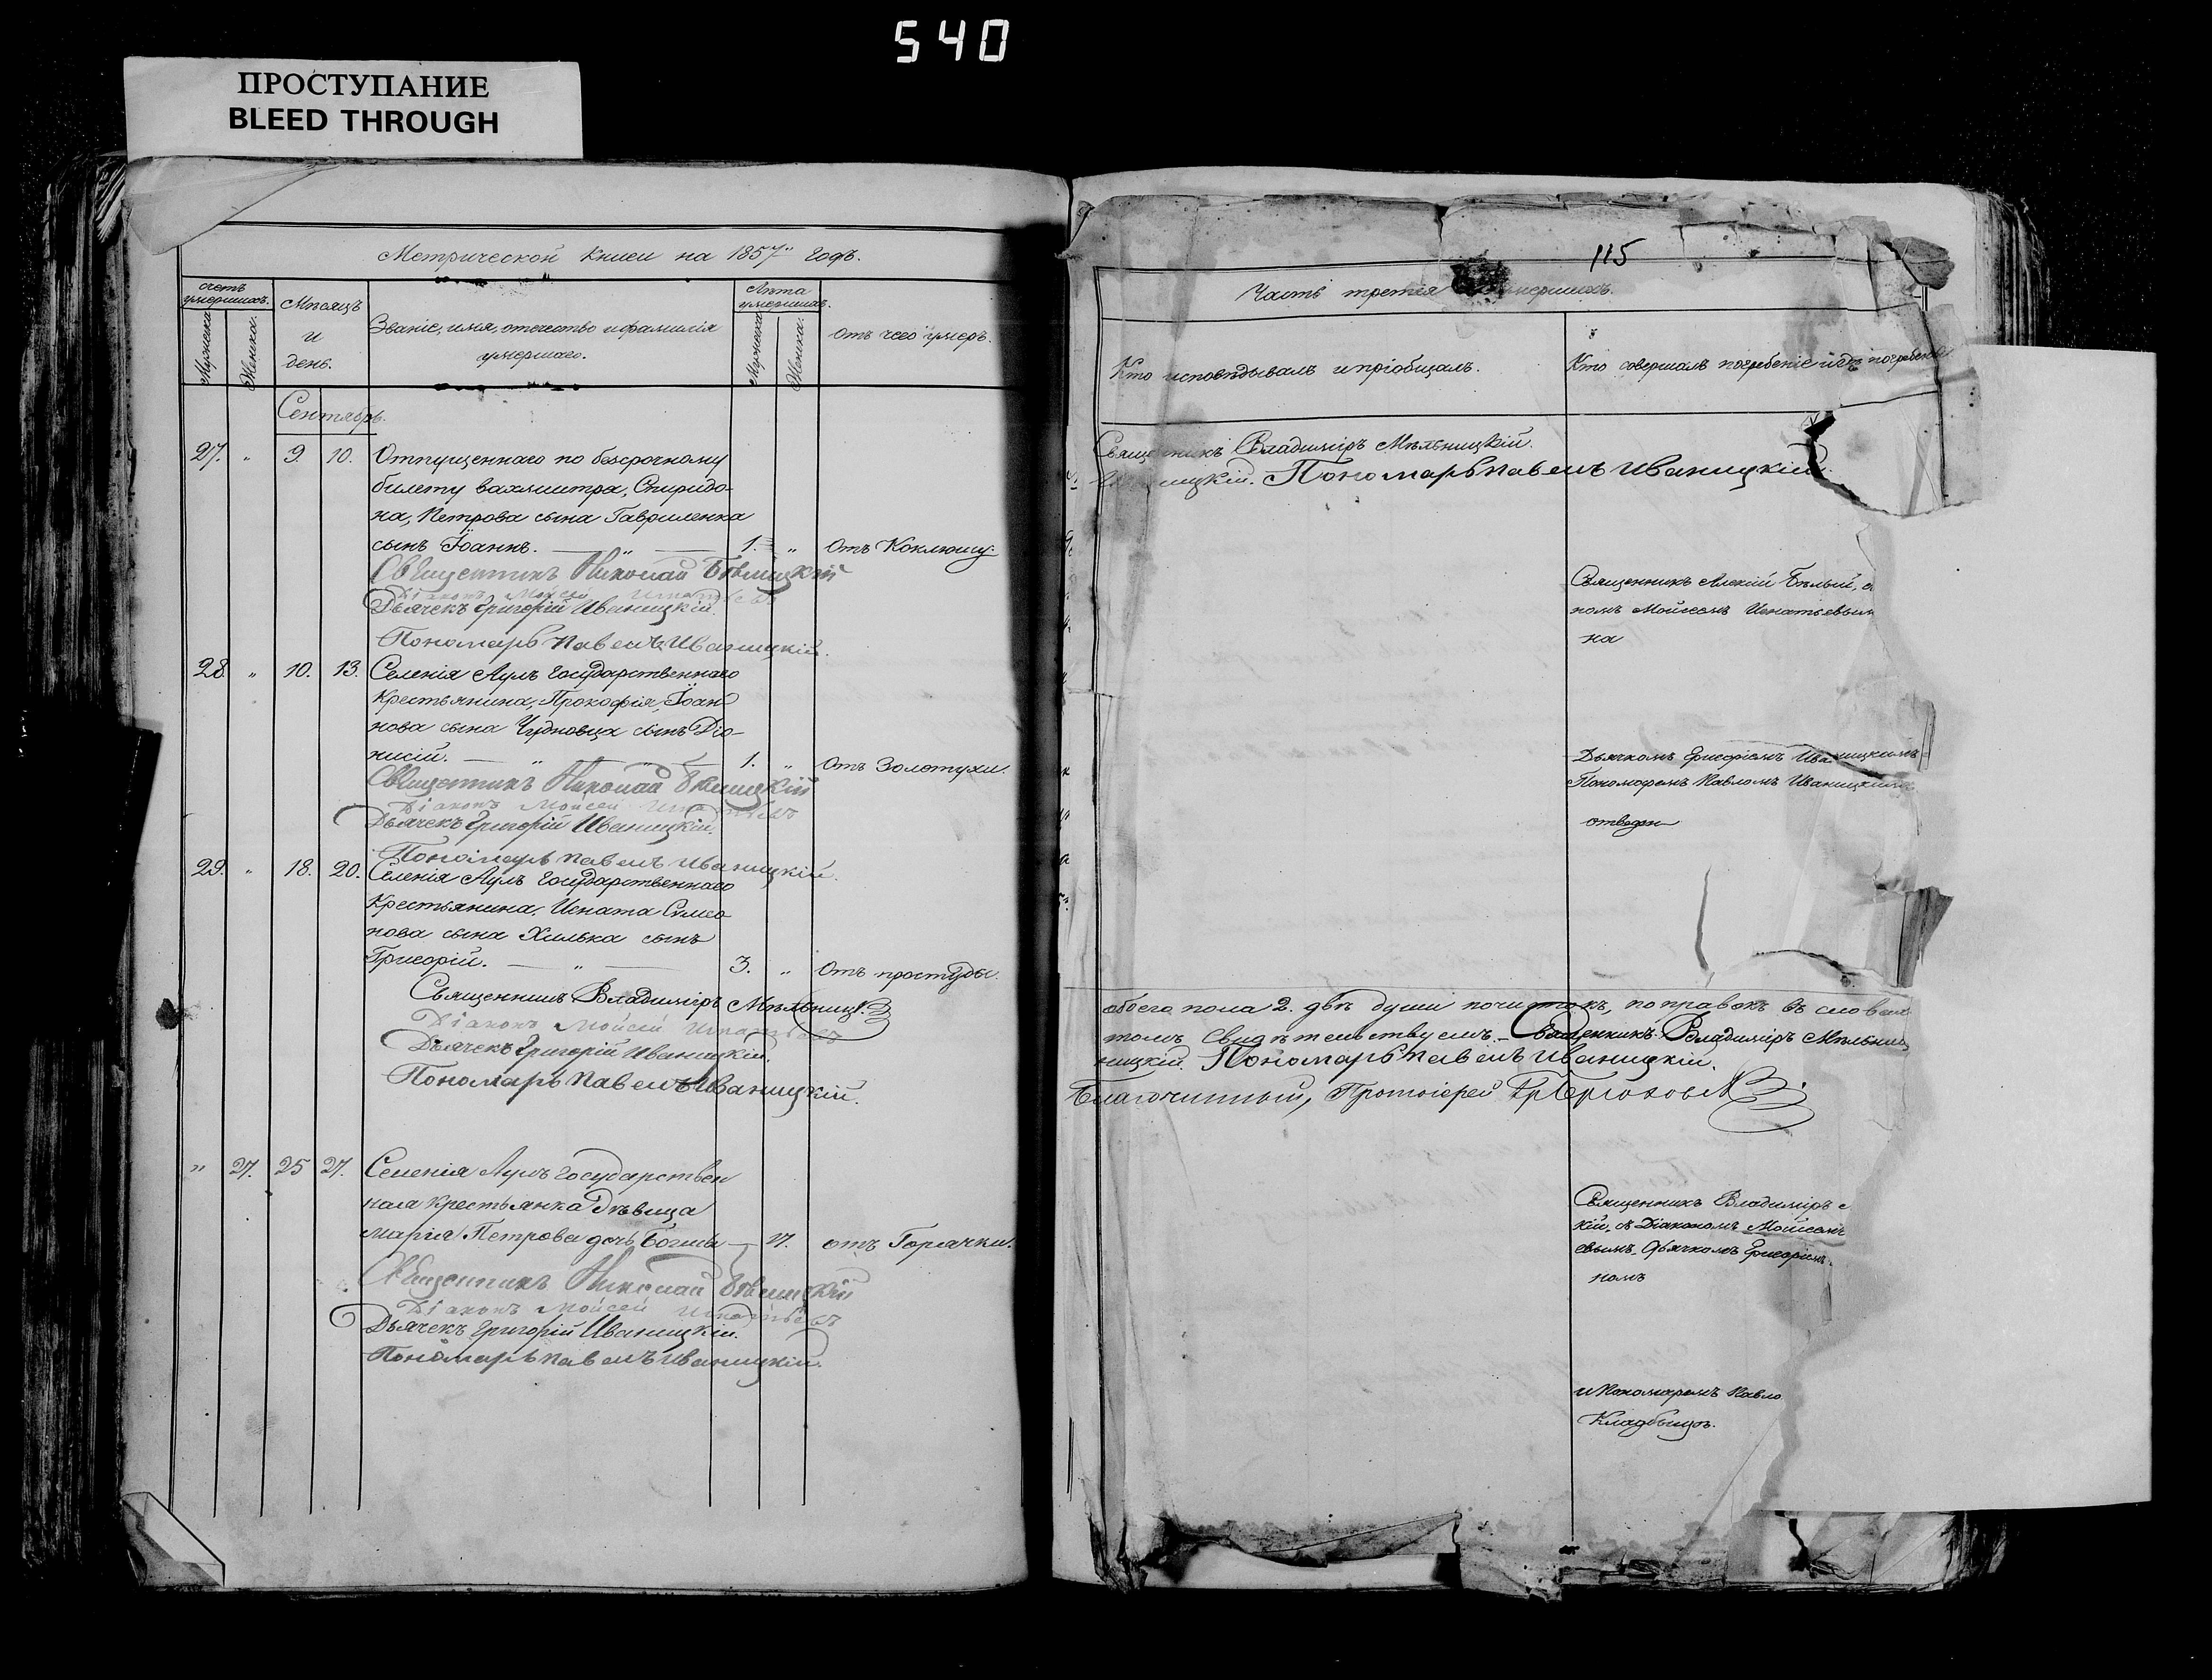 540
ПРОСТУПАНИЕ
BLEED THROUGH
Метрической книги на 1857й годъ.
счетъ умершихъ.
Мужеска
Женска.
Мѣсяцъ и день.
Званіе, имя, отечество и фамилія умершаго.
Лѣта умершихъ.
Мужеска
Женска.
отъ чего умеръ.
Сентябрь.
27. " 9. 10. Отпущеннаго по безсрочному
билету вахмистра, Спиридо-
на, Петрова сына Гавриленка
сынъ Іоаннъ. — " — 1. " Отъ Коклюшу.
Священникъ Николай
Діаконъ Мойсей Игнатьевъ
Дьячекъ Григорій Иваницкій.
Пономарь Павелъ Иваницкій.
28. " 10. 13. Селенія Аулъ Государственнаго
Крестьянина, Прокофія, Іоан
нова сына Чудновца сынъ Діо-
нисій. — " — 1. " Отъ Золотухи.
Священникъ Николай
Діаконъ Мойсей Игнатьевъ
Дьячекъ Григорій Иваницкій.
Пономарь Павелъ Иваницкій.
29. " 18. 20. Селенія Аулъ Государственнаго
Крестьянина, Игната Симео
нова сына Хилька сынъ
Григорій. — " — 3. " Отъ простуды.
Священникъ Владиміръ Мѣльницк.
Діаконъ Мойсей Игнатьевъ
Дьячекъ Григорій Иваницкій.
Пономарь Павелъ Иваницкій.
" 27. 25 27. Селенія Аулъ Государствен
ная крестьянка дѣвица
Марія Петрова дочь — 17. отъ Горячки.
Священникъ Николай
Діаконъ Мойсей Игнатьевъ
Дьячекъ Григорій Иваницкій.
Пономарь Павелъ Иваницкій.
115
Часть третія умершихъ.
Кто исповѣдывалъ и пріобщалъ.
Кто совершалъ погребеніе и гдѣ погребены
Священникъ Владиміръ Мѣльницкій.
ницкій. Пономарь Павелъ Иваницкій.
Священникъ Алексій Бѣлый, с
номъ Мойсеемъ Игнатьевым
на
Дьячкомъ Григоріемъ Иваницкимъ
Пономаремъ Павломъ Иваницкимъ
отведен
обего пола 2. двѣ души почистокъ, поправокъ въ
томъ свидѣтельствуемъ. Священникъ Владиміръ Мѣльниц
ницкій. Пономарь Павелъ Иваницкій.
Благочинный, Протоіерей
Священникъ Владиміръ
кій, съ Діакономъ Мойсеемъ
евымъ, Дьячкомъ Григоріемъ
номъ
и Пономаремъ Павло
Кладбищѣ.